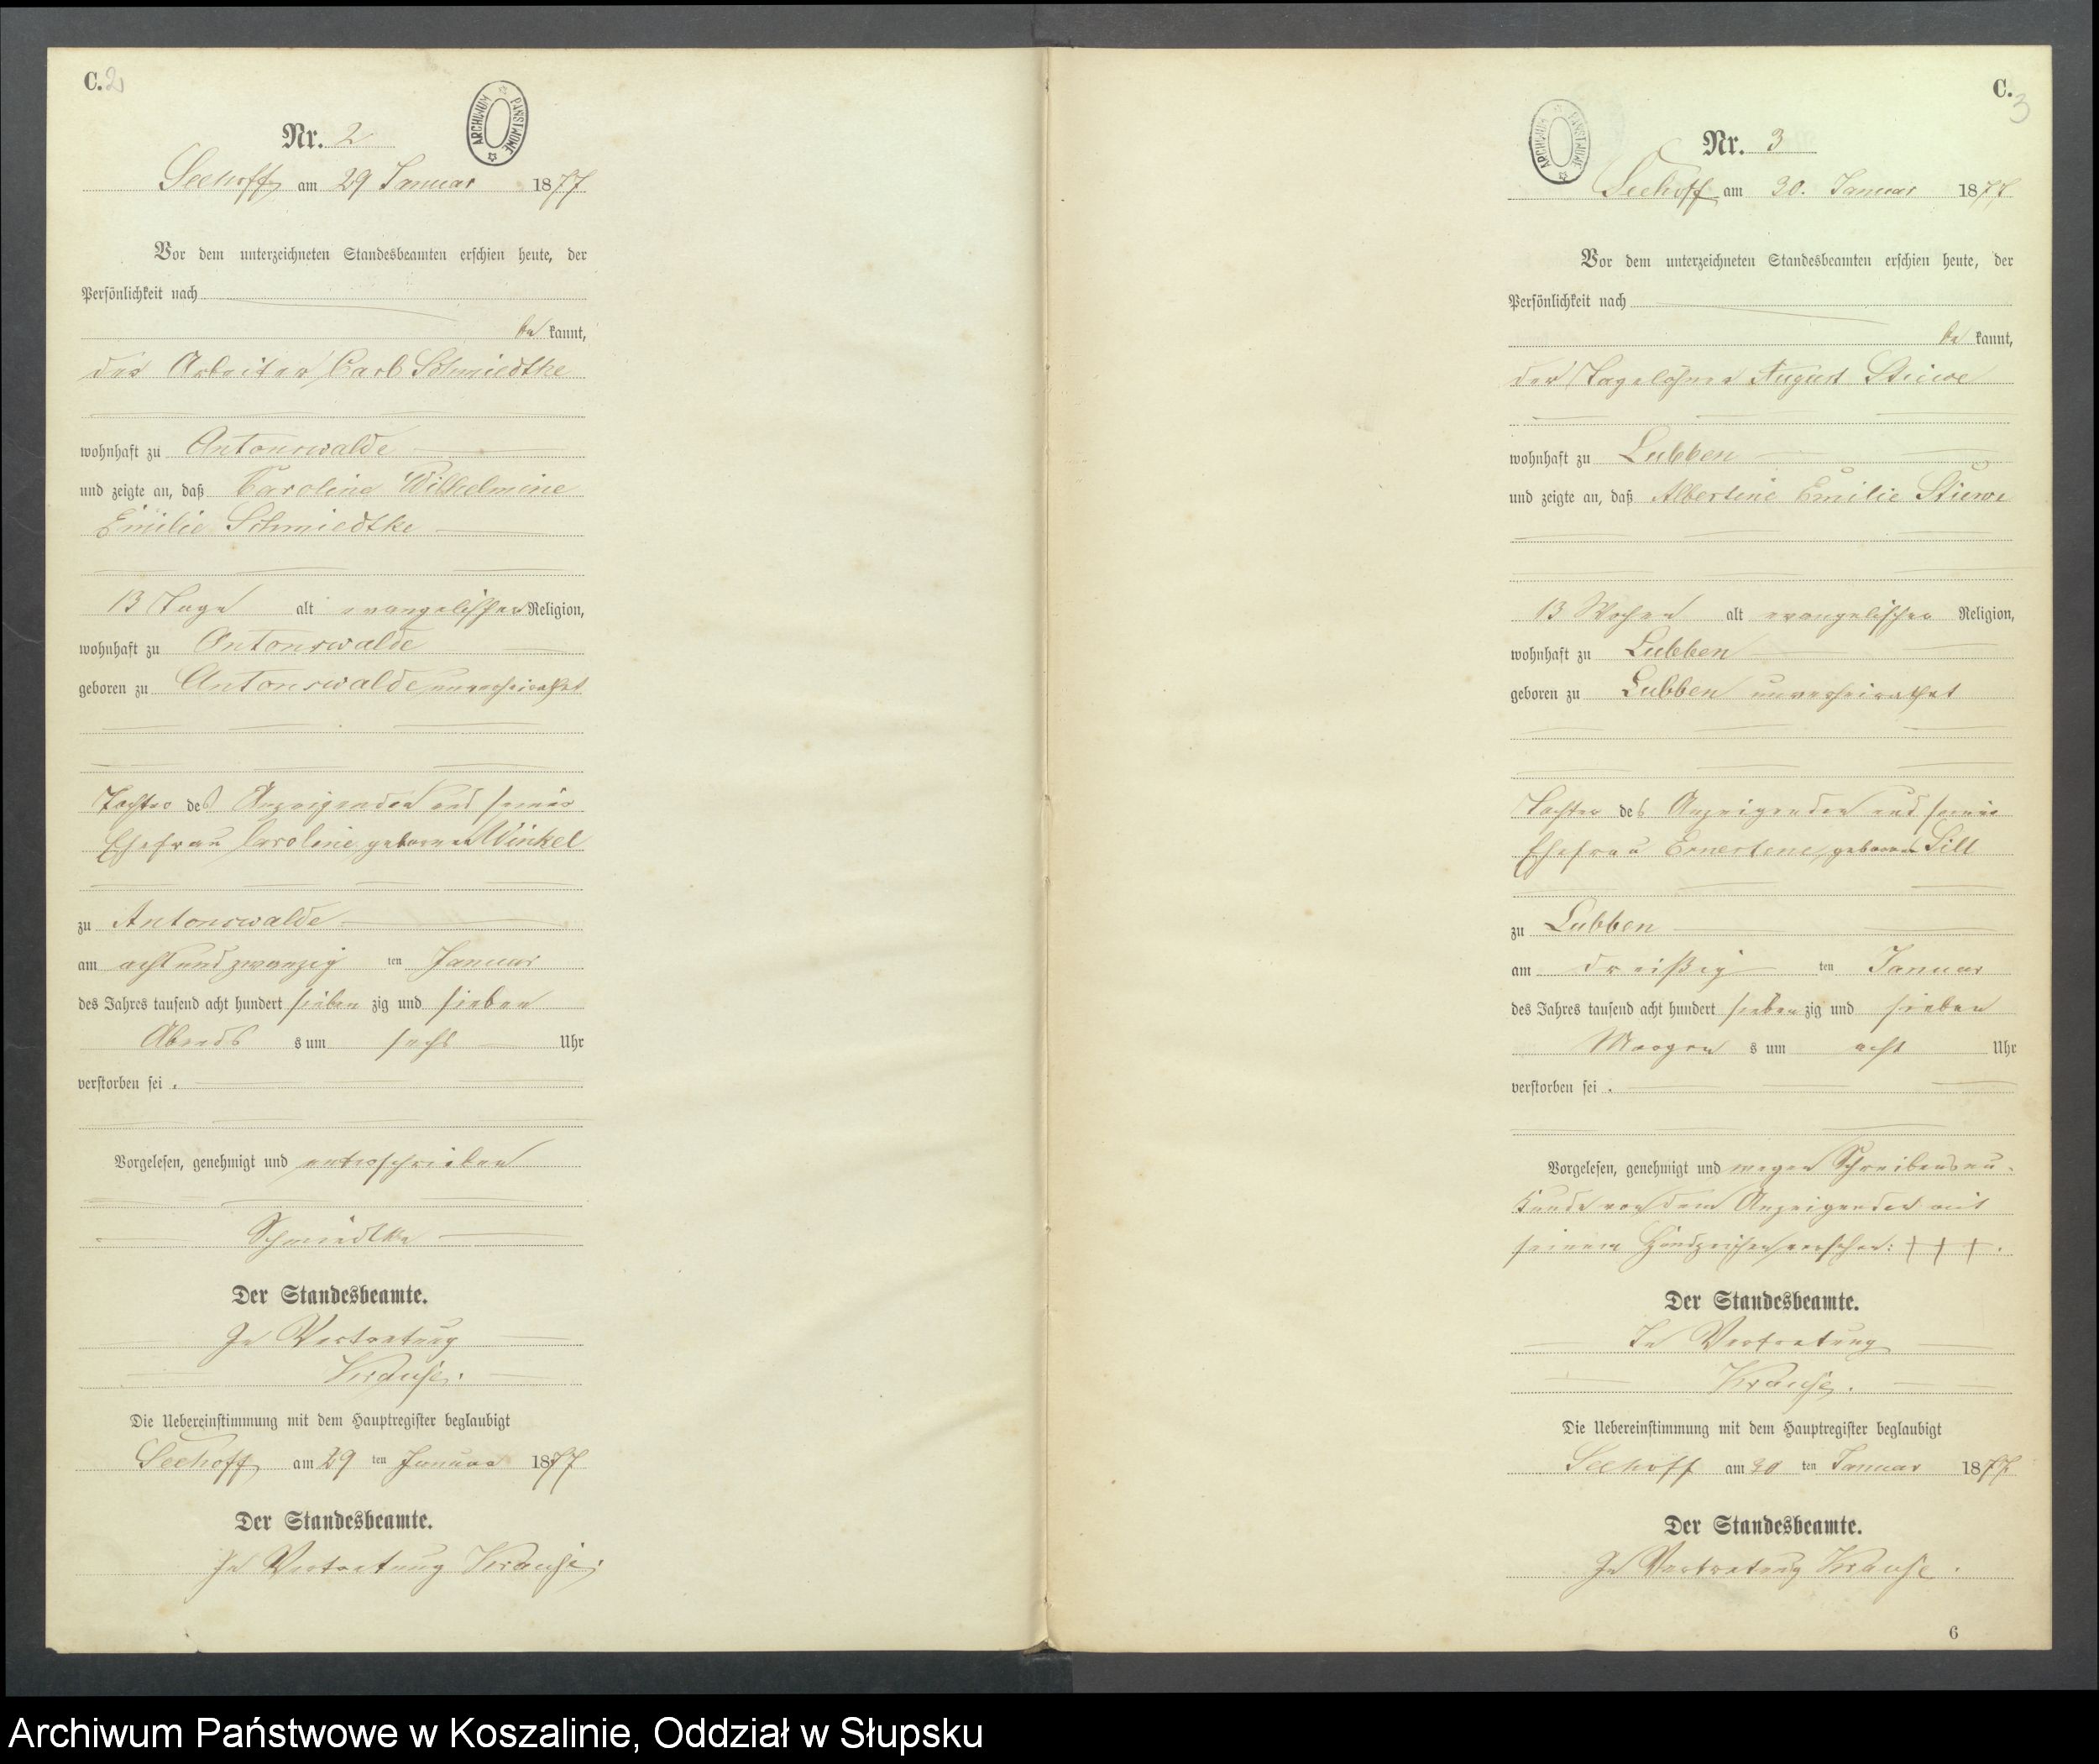 C. 2
Nr. 2
ARCHIWUM PAŃSTWOWE
Seehoff am 29 Januar 1877
Vor dem unterzeichneten Standesbeamten erschien heute, der
Persönlichkeit nach
be kannt,
der Arbeiter Carl Schmiedtke
wohnhaft zu Antonswalde
und zeigte an, daß Caroline Wilhelmine
Emilie Schmiedtke
13 Tage alt evangelischer Religion,
wohnhaft zu Antonswalde
geboren zu Antonswalde unverheirathet
Tochter des Anzeigenden und seiner
Ehefrau Caroline geborenen Winkel
zu Antonswalde
am acht und zwanzig ten Januar
des Jahres tausend acht hundert sieben zig und sieben
Abends s um sechs Uhr
verstorben sei .
Vorgelesen, genehmigt und unterschrieben
Schmiedtke
Der Standesbeamte.
In Vertretung
Krause.
Die Uebereinstimmung mit dem Hauptregister beglaubigt
Seehoff am 29 ten Januar 1877
Der Standesbeamte.
In Vertretung Krause.
C. 3
Nr. 3
ARCHIWUM PAŃSTWOWE
Seehoff am 30. Januar 1877
Vor dem unterzeichneten Standesbeamten erschien heute, der
Persönlichkeit nach
be kannt,
der Tagelöhner August Stüwe
wohnhaft zu Lubben
und zeigte an, daß Albertine Emilie Stüwe
13 Wochen alt evangelischer Religion,
wohnhaft zu Lubben
geboren zu Lubben unverheirathet
Tochter des Anzeigenden und seiner
Ehefrau Ernestine geborene Sill
zu Lubben
am dreißig ten Januar
des Jahres tausend acht hundert sieben zig und sieben
Morgen s um acht Uhr
verstorben sei .
Vorgelesen, genehmigt und wegen Schreibensun-
kunde von dem Anzeigenden mit
seinem Handzeichen versehen: + + + .
Der Standesbeamte.
In Vertretung
Krause.
Die Uebereinstimmung mit dem Hauptregister beglaubigt
Seehoff am 30 ten Januar 1877
Der Standesbeamte.
In Vertretung Krause.
6
Archiwum Państwowe w Koszalinie, Oddział w Słupsku